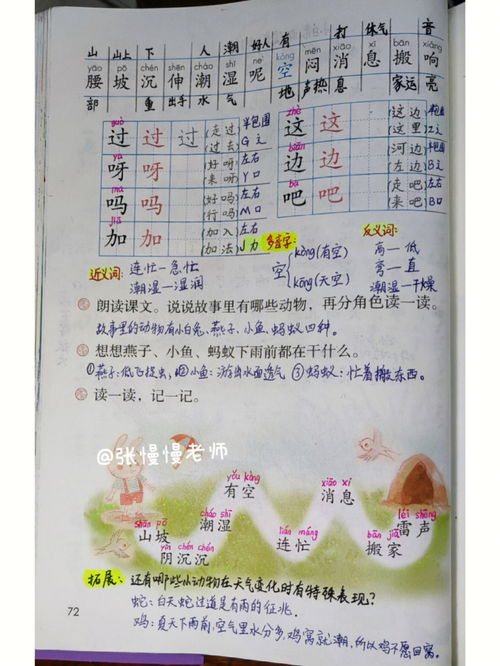 山 山上 下 人 潮 好人 有 打 体气 音
yāo pō chén shēn cháo shī ne kòng mèn xiāo xi bān xiǎng
腰 坡 沉 伸 潮 湿 呢 空 闷 消 息 搬 响
部 重 出手 水 气 地 声 热 息 家 运 亮
guò
过 过 过 (走过) (过去) 半包围 G 辶
zhè
这 这 (这边) (这里) 半包围 Z 辶
ya
呀 呀 (好呀) (来呀) 左右 Y 口
biān
边 边 (河边) (左边) 半包围 B 辶
ma
吗 吗 (好吗) (行吗) 左右 M 口
ba
吧 吧 (走吧) (来吧) 左右 B 口
jiā
加 加 (加入) (加法) 左右 J 力
多音字: 空 kòng(有空) kōng(天空)
反义词: 高—低
弯—直
潮湿—干燥
近义词: 连忙—急忙
潮湿—湿润
朗读课文。说说故事里有哪些动物，再分角色读一读。
故事里的动物有小白兔、燕子、小鱼、蚂蚁四种。
想想燕子、小鱼、蚂蚁下雨前都在干什么。
①燕子:低飞捉虫, ②小鱼:游出水面透气 ③蚂蚁:忙着搬东西。
读一读，记一记。
@张慢慢老师
yǒu kòng
有空
xiāo xi
消息
cháo shī
潮湿
léi shēng
雷声
shān pō
山坡
lián máng
连忙
bān jiā
搬家
yīn chén chén
阴沉沉
拓展: 还有哪些小动物在天气变化时有特殊表现?
蛇:白天蛇过道是有雨的征兆.
72
鸡:夏天下雨前,空气里水分多,鸡窝就潮,所以鸡不愿回窝。